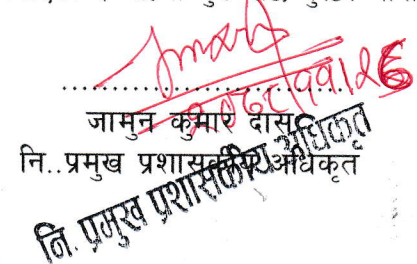 ........................
२०८१।११।२६
जामुन कुमार दास
नि..प्रमुख प्रशासकीय अधिकृत
नि. प्रमुख प्रशासकीय अधिकृत